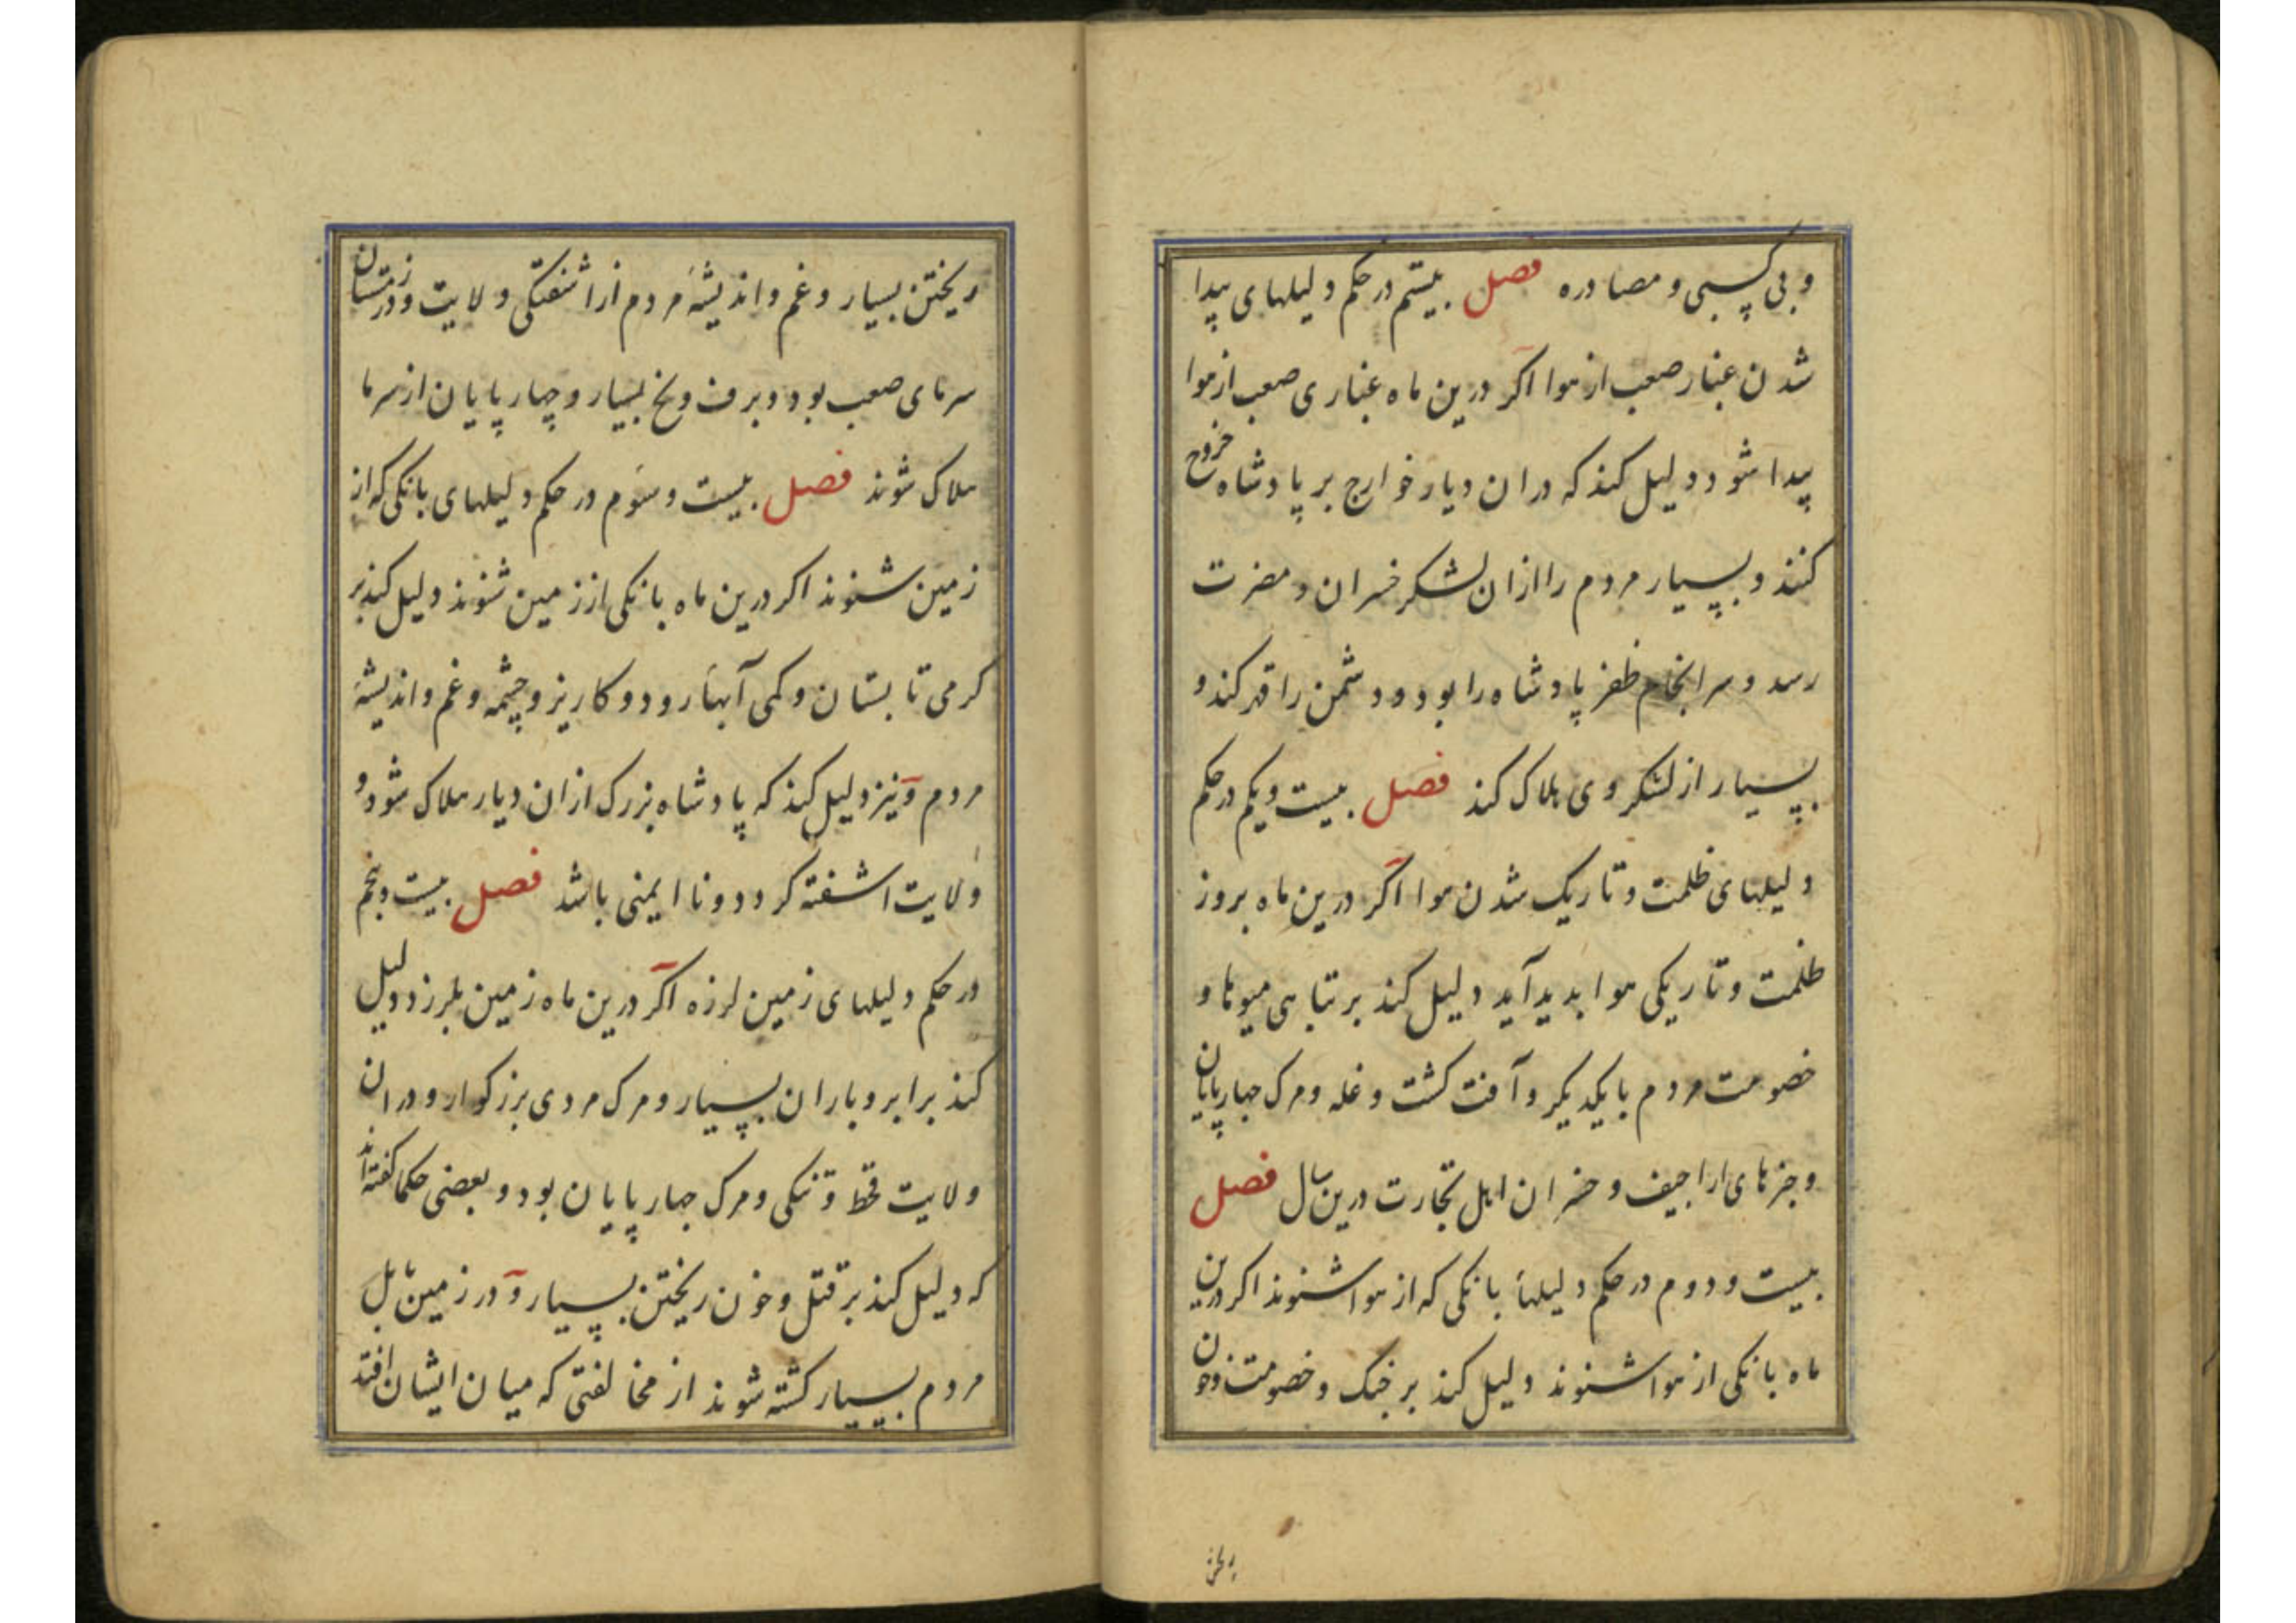 و بی کسبی و مصادره فصل بیستم در حکم دلیلهای پیدا
شدن غبار صعب از هوا اکر درین ماه غباری صعب از هوا
پیدا شود دلیل کند که دران دیار خوارج بر پادشاه خروج
کنند و بسیار مردم را ازان لشکر خسران و مضرت
رسد و سرانجام ظفر پادشاه را بود و دشمن را قهر کند و
بسیار از لشکر وی هلاک کند فصل بیست و یکم در حکم
دلیلهای ظلمت و تاریک شدن هوا اکر درین ماه بروز
ظلمت و تاریکی هوا بدید آید دلیل کند بر تباهی میوها و
خصومت مردم با یکدیکر و آفت کشت و غله و مرک جهارپایان
و خبرهای اراجیف و خسران اهل تجارت درین سال فصل
بیست و دوم در حکم دلیلهاء بانکی که از هوا شنوند اکر درین
ماه بانکی از هوا شنوند دلیل کند بر جنک و خصومت و خون
ریختن
ریختن بسیار و غم و اندیشهٔ مردم از اشفتکی ولایت و در زمستان
سرمای صعب بود و برف و یخ بسیار و چهارپایان از سرما
هلاک شوند فصل بیست و سوم در حکم دلیلهای بانکی که از
زمین شنوند اکر درین ماه بانکی از زمین شنوند دلیل کند بر
کرمی تابستان و کمی آبهاء رود و کاریز و چشمه و غم و اندیشهٔ
مردم و نیز دلیل کند که پادشاه بزرک ازان دیار هلاک شود و
ولایت اشفته کردد و نا ایمنی باشد فصل بیست و پنجم
در حکم دلیلهای زمین لرزه اکر درین ماه زمین بلرزد دلیل
کند بر ابر و باران بسیار و مرک مردی بزرکوار و دران
ولایت قحط و تنکی و مرک جهارپایان بود و بعضی حکما کفته اند
که دلیل کند بر قتل و خون ریختن بسیار و در زمین بابل
مردم بسیار کشته شوند از مخالفتی که میان ایشان افتد